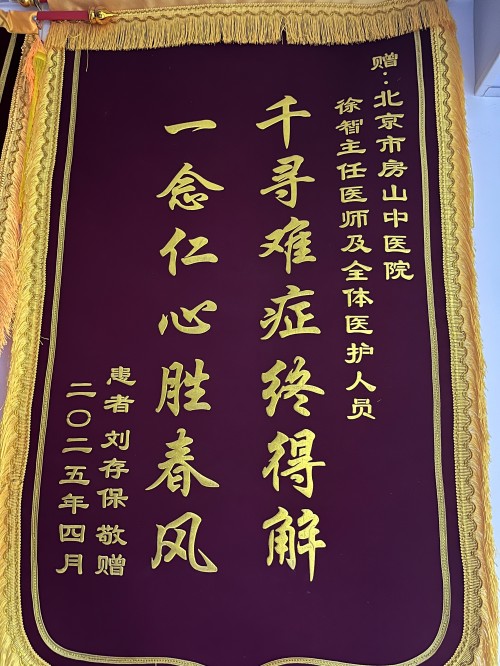 赠：北京市房山中医院
徐智主任医师及全体医护人员
千寻难症终得解
一念仁心胜春风
患者刘存保敬赠
二〇二五年四月